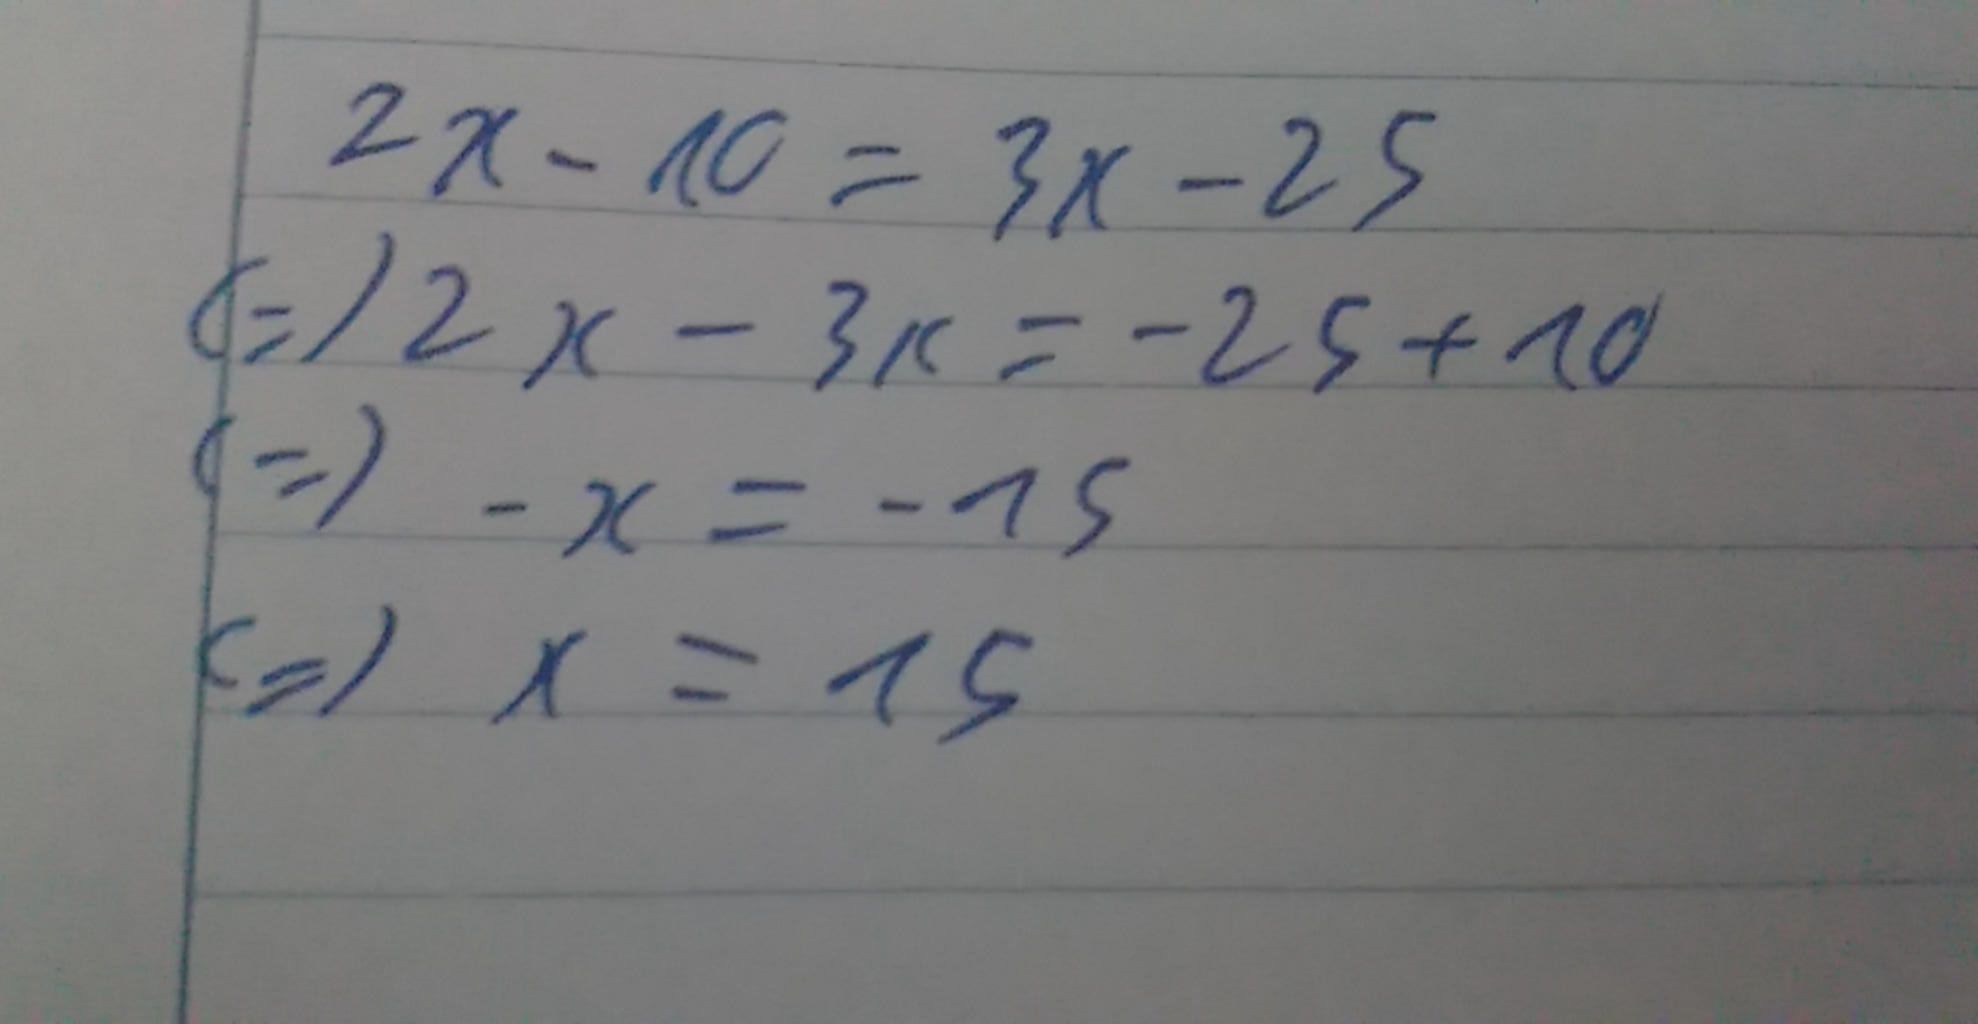 2x - 10 = 3x - 25
(=) 2x - 3x = -25 + 10
(=) -x = -15
(=) x = 15